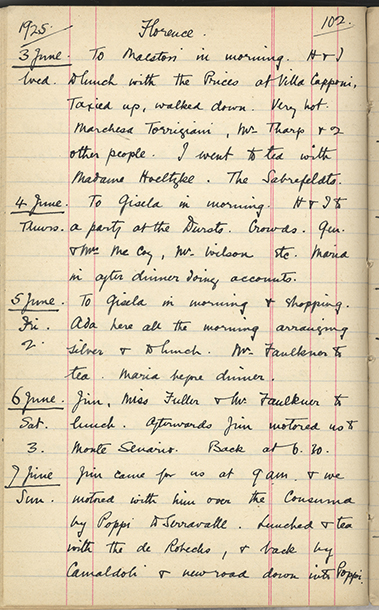 1925. Florence. 102.
3 June. To Maestori in morning. H & I
Wed. to lunch with the Prices at Villa Capponi,
Taxied up, walked down. Very hot.
Marchesa Torrigiani, Mr Tharp & 2
other people. I went to tea with
Madame Hoeltzke. The
4 June. To Gisela in morning. H & I to
Thurs. a party at the Dursts. Crowds. Gen.
& Mrs McCoy, Mr. Wilson etc. Maria
in after dinner doing accounts.
5 June. To Gisela in morning & shopping.
Fri. Ada here all the morning arranging
2. silver & to lunch. Mr. Faulkner to
tea. Maria before dinner.
6 June. Jim, Miss Fuller & Mr. Faulkner to
Sat. lunch. Afterwards Jim motored us to
3. Monte Senario. Back at 6.30.
7 June Jim came for us at 9 am. & we
Sun. motored with him over the Consuma
by Poppi to Serravalle. Lunched & tea
with the de Robecks, & back by
Camaldoli & new road down into Poppi.